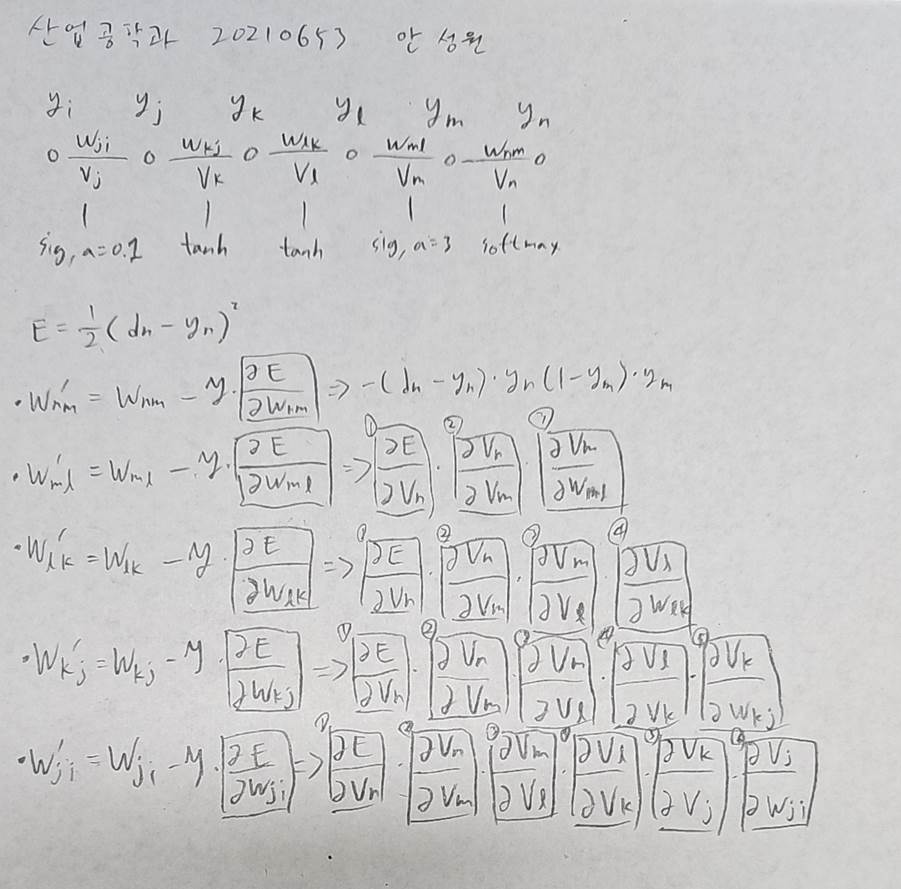 산업공학과 20210653 안성원
yi yj yk yl ym yn
o wji/Vj o wkj/Vk o wlk/Vl o wml/Vm o wnm/Vn o
| | | | |
sig, a=0.1 tanh tanh sig, a=3 softmax
E = 1/2 (dn - yn)²
• Wnm' = Wnm - y · ∂E/∂Wnm => -(dn - yn) · yn(1 - ym) · ym
• Wml' = Wml - y · ∂E/∂Wml => ① ∂E/∂Vn · ② ∂Vn/∂Vm · ⑦ ∂Vm/∂Wml
• Wlk' = Wlk - y · ∂E/∂Wlk => ① ∂E/∂Vn · ② ∂Vn/∂Vm · ③ ∂Vm/∂Vl · ④ ∂Vl/∂Wlk
• Wkj' = Wkj - y · ∂E/∂Wkj => ① ∂E/∂Vn · ② ∂Vn/∂Vm · ③ ∂Vm/∂Vl · ④ ∂Vl/∂Vk · ⑤ ∂Vk/∂Wkj
• Wji' = Wji - y · ∂E/∂Wji => ① ∂E/∂Vn · ② ∂Vn/∂Vm · ③ ∂Vm/∂Vl · ④ ∂Vl/∂Vk · ⑤ ∂Vk/∂Vj · ⑥ ∂Vj/∂Wji